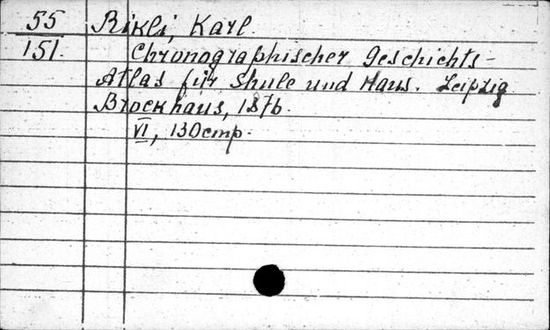 55
151.
Rikli, Karl.
Chronographischer Geschichts-
Atlas für Shule und Haus. Leipzig
Brockhaus, 1876.
VI, 130 стр.